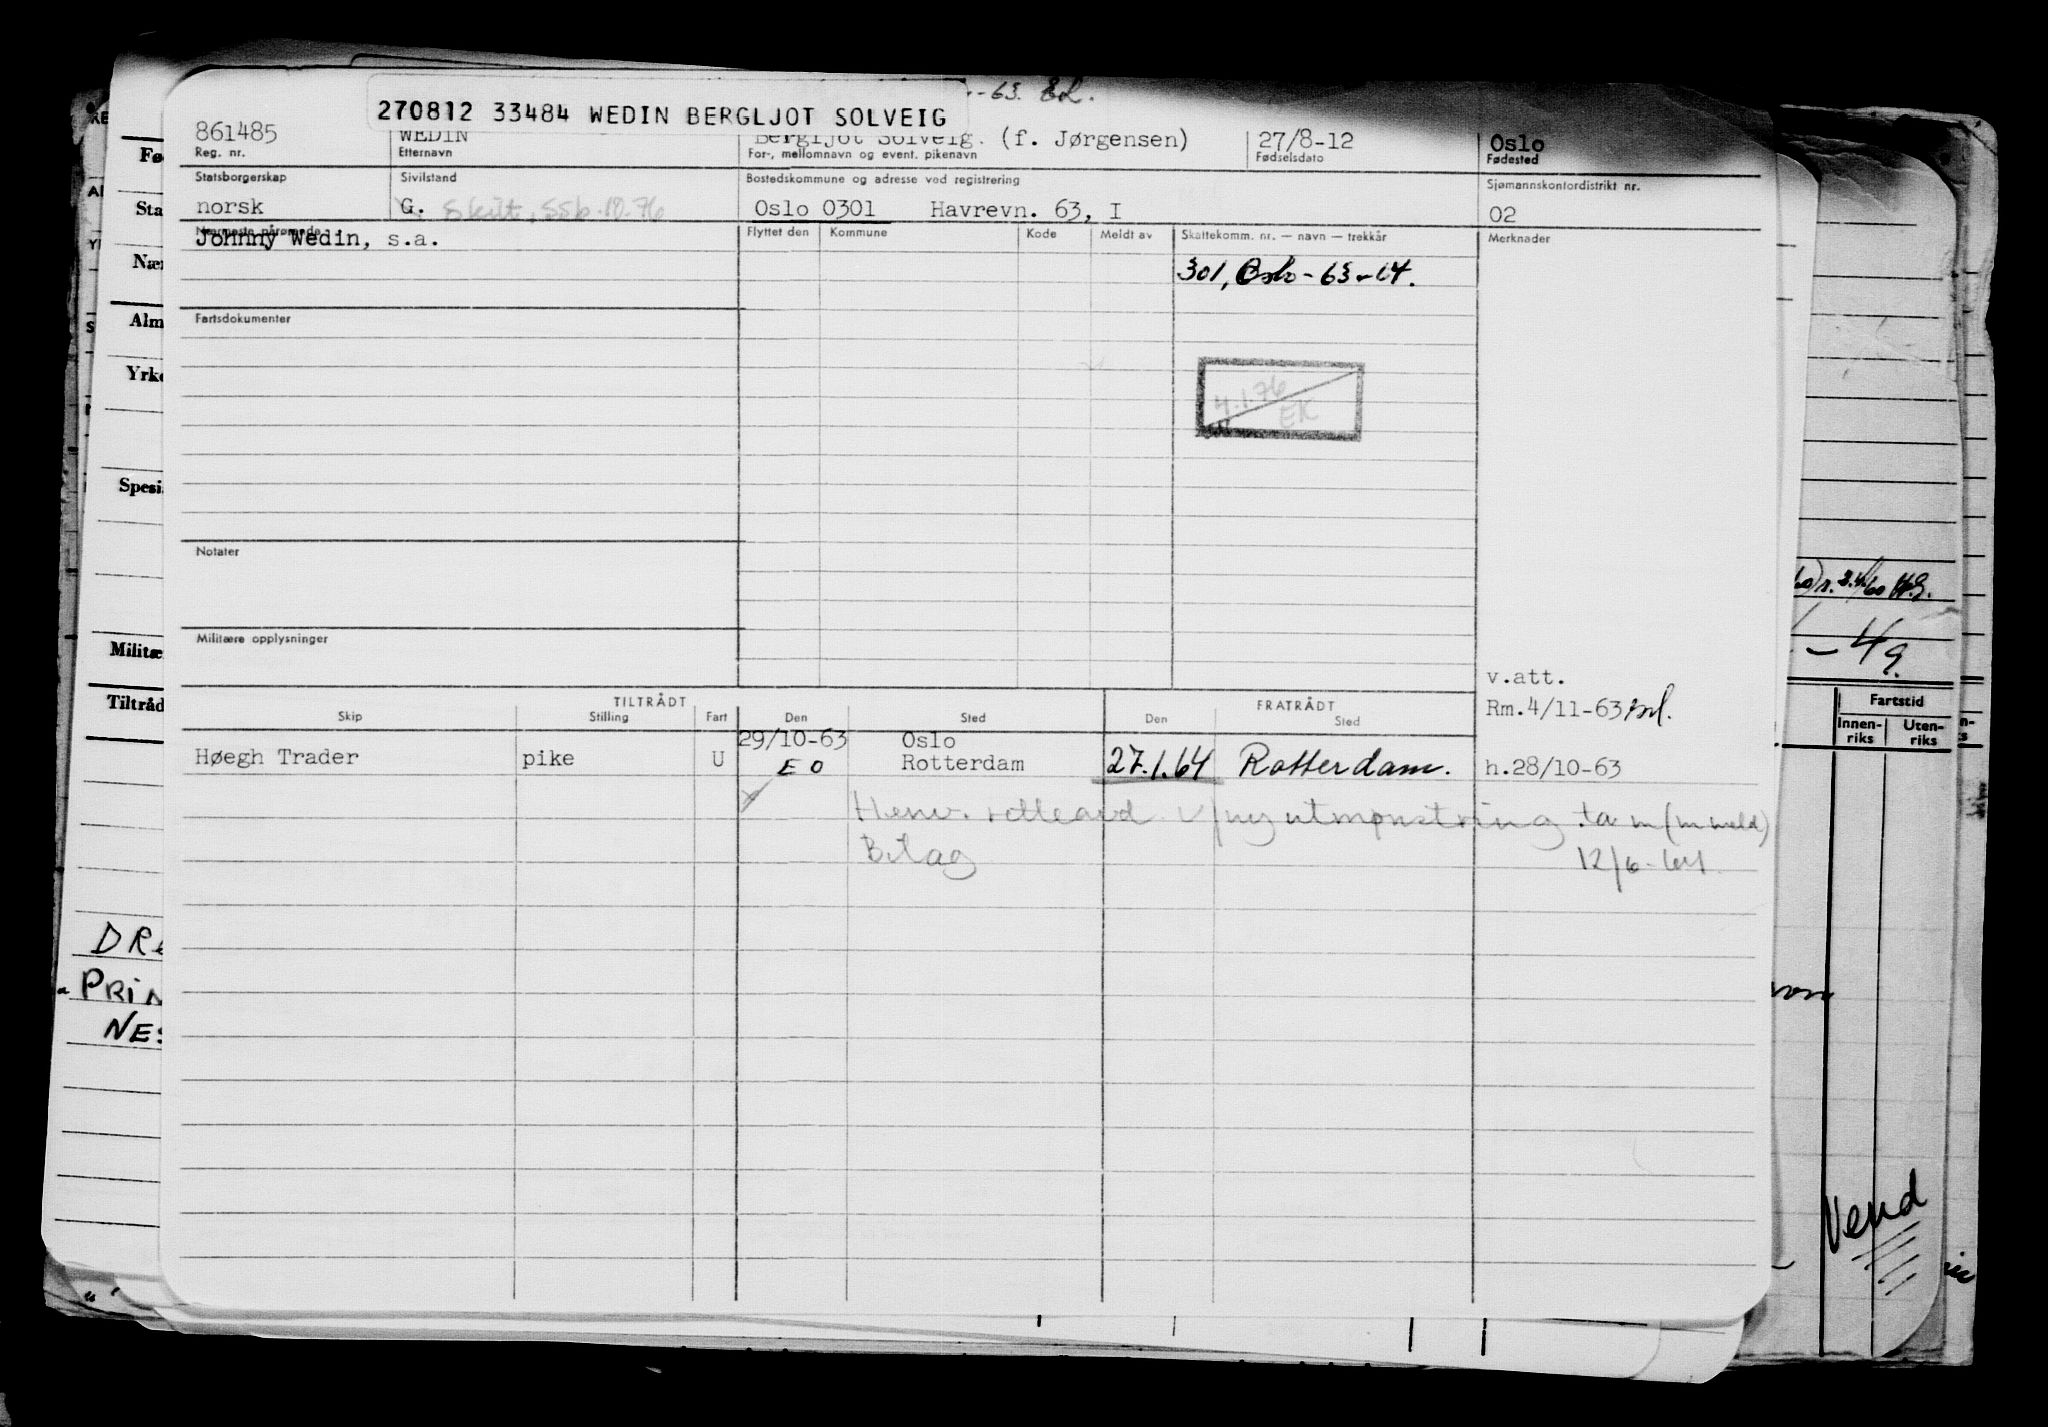 -63. EL.
270812 33484 WEDIN BERGLJOT SOLVEIG
861485 WEDIN Bergljot Solveig. (f. Jørgensen) 27/8-12 Oslo
Reg. nr. Etternavn For-, mellomnavn og event. pikenavn Fødselsdato Fødested
Statsborgerskap Sivilstand Bostedskommune og adresse ved registrering Sjømannskontordistrikt nr.
norsk G. Skilt, SSb. 10.76 Oslo 0301 Havrevn. 63, I 02
Nærmeste pårørende Flyttet den Kommune Kode Meldt av Skattekomm. nr. — navn — trekkår Merknader
Johnny Wedin, s.a.
301, Oslo - 63-64.
Fartsdokumenter
4.1.76
EK
Notater
Militære opplysninger
v.att.
Rm.4/11-63
TILTRÅDT FRATRÅDT
Skip Stilling Fart Den Sted Den Sted
29/10-63 Oslo
Høegh Trader pike U EO Rotterdam 27.1.64 Rotterdam. h.28/10-63
Henv. rettleavd. v/ny utmønstring
Bilag 12/6-64
Fø
Sta
Nær
Alm
Yrke
Spesi
Militæ
Tiltråd
DR
PRIN
NES
r. 2.4/60 H.G.
- 49.
Fartstid
Innen-riks Uten-riks
Vend